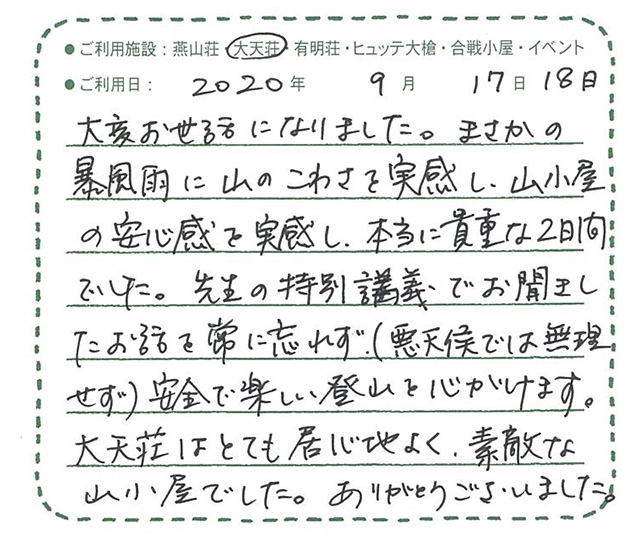 ● ご利用施設：燕山荘・大天荘・有明荘・ヒュッテ大槍・合戦小屋・イベント
● ご利用日： 2020年 9月 17日 18日
大変お世話になりました。まさかの
暴風雨に山のこわさを実感し、山小屋
の安心感を実感し、本当に貴重な2日間
でした。先生の特別講義でお聞きし
たお話を常に忘れず、(悪天候では無理
せず)安全で楽しい登山を心がけます。
大天荘はとても居心地よく、素敵な
山小屋でした。ありがとうございました。